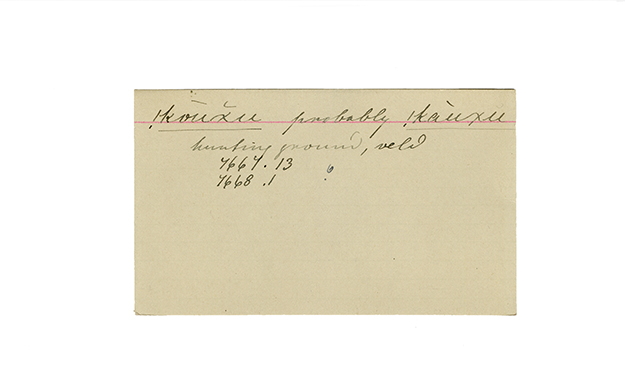 !kòuẋu probably !kàuẋu
hunting ground, veld
7667. 13
7668 .1